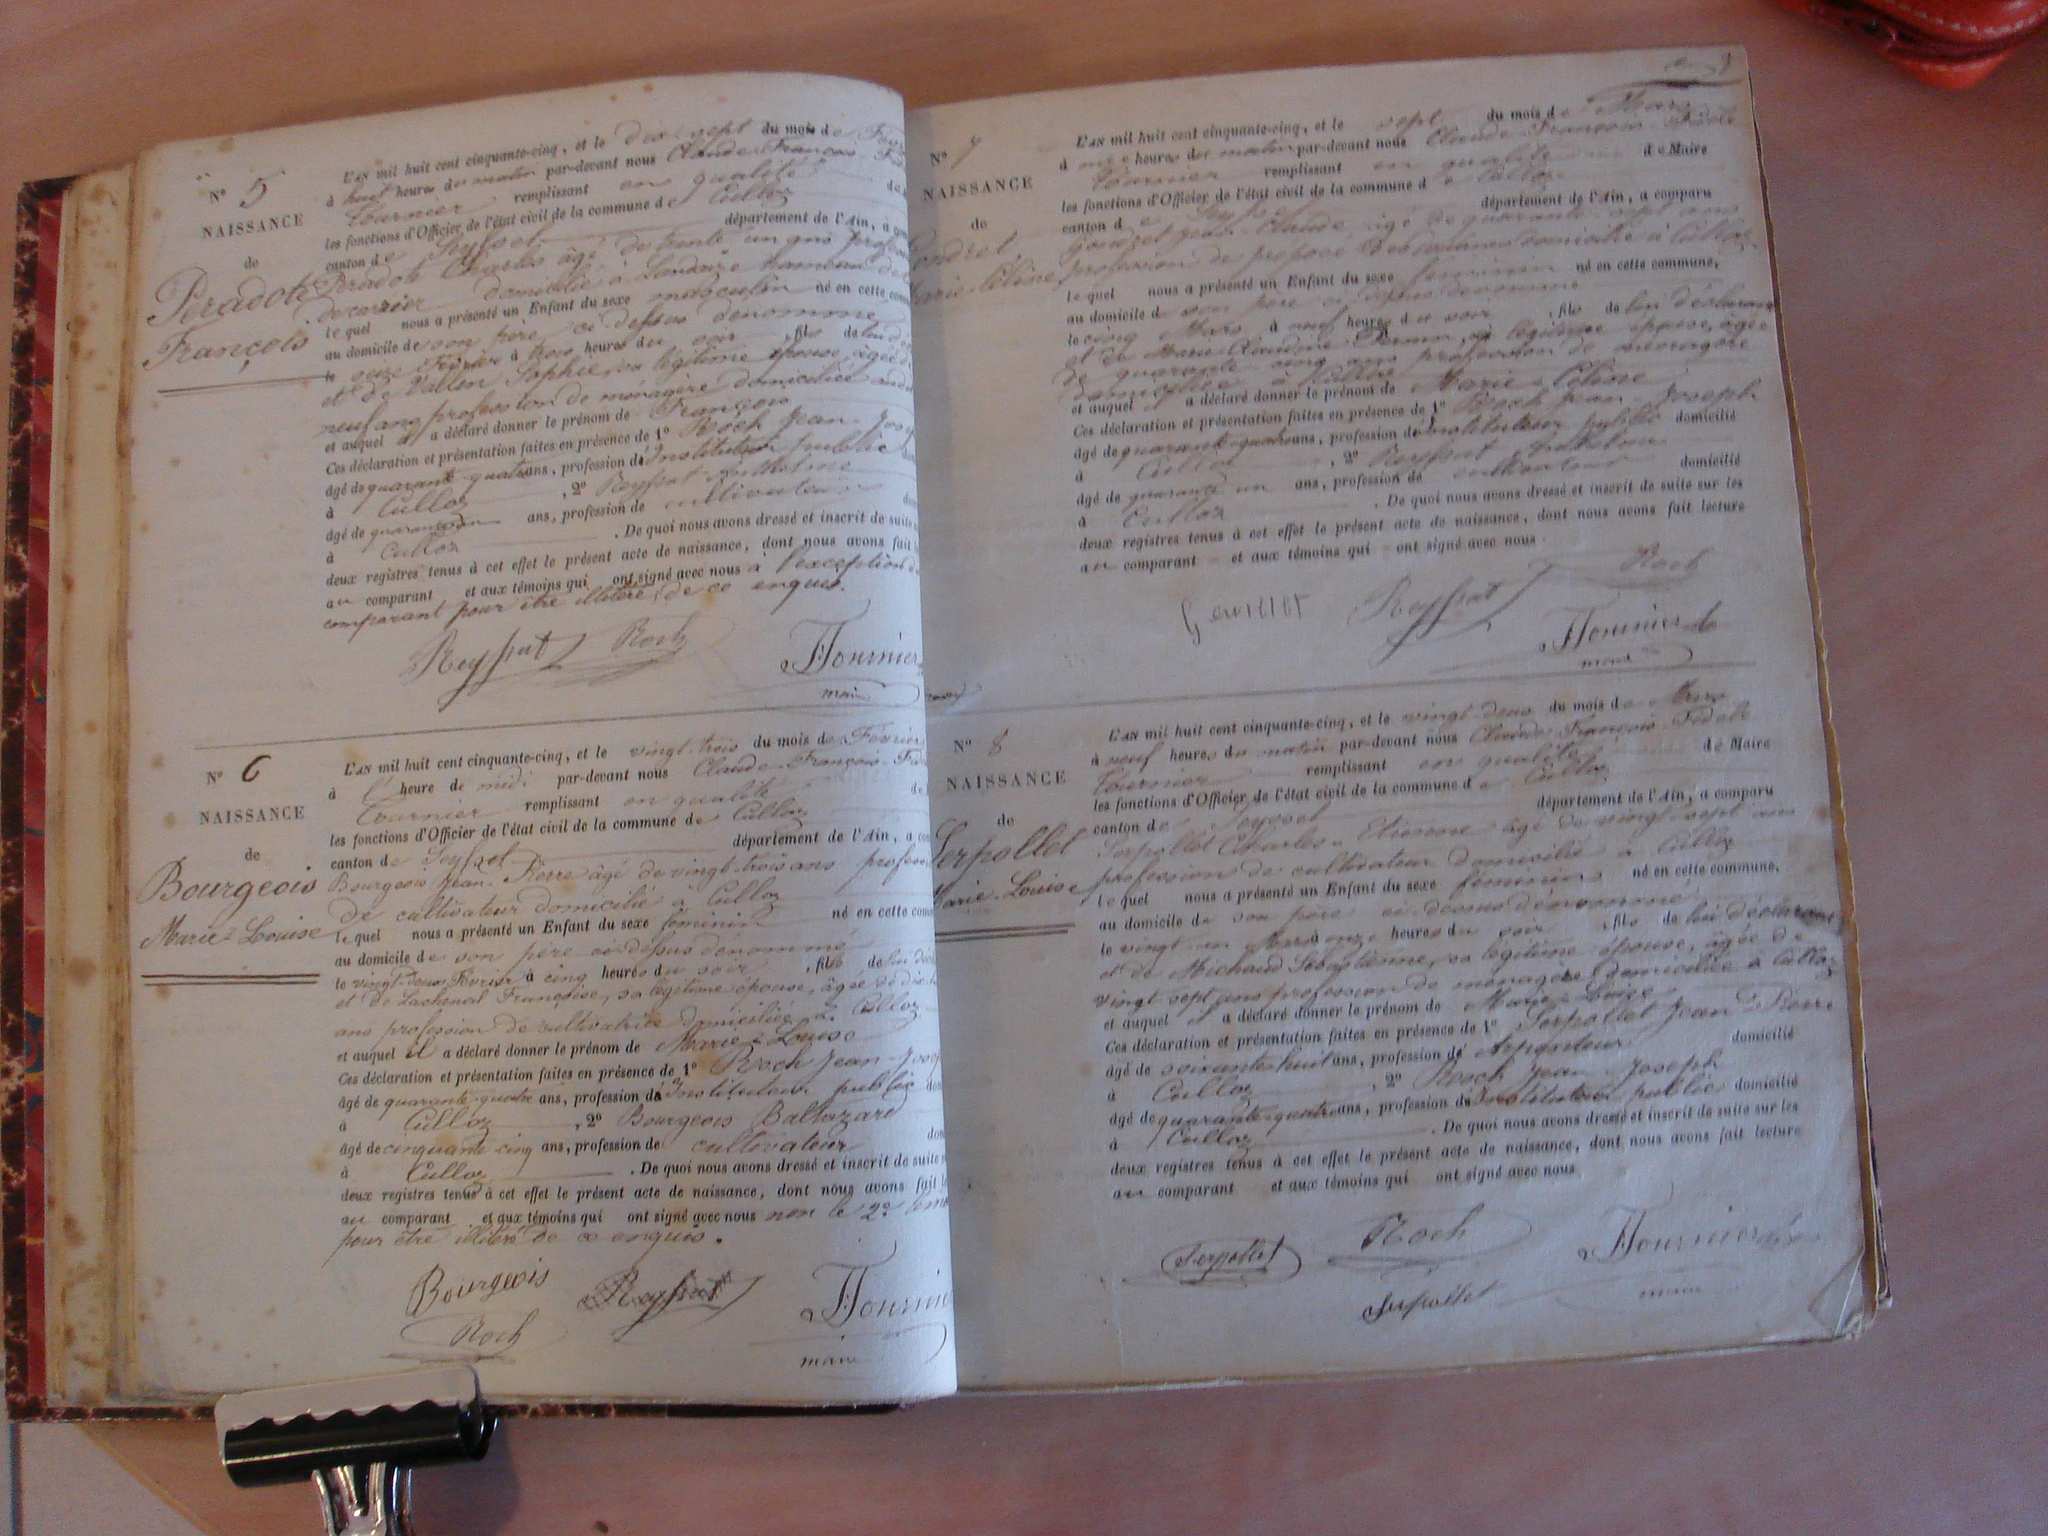 N° 5
NAISSANCE
de
Peradotto
François
L'AN mil huit cent cinquante-cinq, et le dix sept du mois de
à huit heures du matin par-devant nous Claude François
Tournier remplissant en qualité
les fonctions d'Officier de l'état civil de la commune de Culloz
canton de Seyssel département de l'Ain, a
Charles âgé de trente un ans
domicilié à hameau de
le quel nous a présenté un Enfant du sexe masculin né en cette
au domicile de son père ci dessus dénommé
le onze Février à trois heures du soir , fils de lui
et de Sophie, sa légitime épouse, âgée de
neuf ans profession de ménagère domiciliée
et auquel il a déclaré donner le prénom de François
Ces déclaration et présentation faites en présence de 1° Roch Jean
âgé de quarante quatre ans, profession d'Instituteur public
à Culloz , 2° Reyssat Anthelme
âgé de quarante un ans, profession de cultivateur
à Culloz . De quoi nous avons dressé et inscrit de suite
deux registres tenus à cet effet le présent acte de naissance, dont nous avons fait
au comparant et aux témoins qui ont signé avec nous à l'exception du
comparant pour être illitéré, de ce enquis.
Reyssat Roch Tournier
maire
N° 6
NAISSANCE
de
Bourgeois
Marie-Louise
L'AN mil huit cent cinquante-cinq, et le vingt-trois du mois de Février
à l' heure de midi par-devant nous Claude-François
Tournier remplissant en qualité
les fonctions d'Officier de l'état civil de la commune de Culloz
canton de Seyssel département de l'Ain, a
Bourgeois Jean-Pierre âgé de vingt-trois ans
de cultivateur domicilié à Culloz
le quel nous a présenté un Enfant du sexe féminin né en cette
au domicile de son père ci-dessus dénommé
le vingt-deux Février à cinq heures du soir , fille de lui
et de Françoise, sa légitime épouse, âgée de
ans profession de cultivatrice domiciliée à Culloz
et auquel il a déclaré donner le prénom de Marie-Louise
Ces déclaration et présentation faites en présence de 1° Roch Jean
âgé de quarante-quatre ans, profession d'Instituteur public
à Culloz , 2° Bourgeois Baltazard
âgé de cinquante-cinq ans, profession de cultivateur
à Culloz . De quoi nous avons dressé et inscrit de suite
deux registres tenus à cet effet le présent acte de naissance, dont nous avons fait
au comparant et aux témoins qui ont signé avec nous non le 2°
pour être illitéré de ce enquis.
Bourgeois Reyssat Tournier
Roch
maire
N° 7
NAISSANCE
de
L'AN mil huit cent cinquante-cinq, et le sept du mois de Mars
à heures du matin par-devant nous Claude François Fidele
Tournier remplissant en qualité de Maire
les fonctions d'Officier de l'état civil de la commune de Culloz
canton de département de l'Ain, a comparu
Claude, âgé de quarante-sept ans
profession de préposé des douanes domicilié à Culloz
le quel nous a présenté un Enfant du sexe féminin né en cette commune,
au domicile de son père ci dessus dénommé
le cinq Mars à neuf heures du soir , fils de lui déclarant
et de Marie Claudine sa légitime épouse, âgée
de quarante cinq ans profession de ménagère
domiciliée à Culloz
et auquel il a déclaré donner le prénom de Marie-Céline
Ces déclaration et présentation faites en présence de 1° Roch Jean-Joseph
âgé de quarante-quatre ans, profession d'instituteur public domicilié
à Culloz , 2° Reyssat Anthelme
âgé de quarante un ans, profession de cultivateur domicilié
à Culloz . De quoi nous avons dressé et inscrit de suite sur les
deux registres tenus à cet effet le présent acte de naissance, dont nous avons fait lecture
au comparant et aux témoins qui ont signé avec nous.
Reyssat Roch
Tournier
N° 8
NAISSANCE
de
Serpollet
Marie-Louise
L'AN mil huit cent cinquante-cinq, et le vingt-deux du mois de Mars
à neuf heures du matin par-devant nous Claude François-Fidele
Tournier remplissant en qualité de Maire
les fonctions d'Officier de l'état civil de la commune de Culloz
canton de Seyssel département de l'Ain, a comparu
Serpollet Charles-Etienne âgé de vingt-sept ans
profession de cultivateur domicilié à Culloz
le quel nous a présenté un Enfant du sexe féminin né en cette commune,
au domicile de son père ci-dessus dénommé
le vingt un Mars à onze heures du soir , fils de lui déclarant
et de Michaud Sébastienne, sa légitime épouse, âgée de
vingt sept ans profession de ménagère domiciliée à Culloz
et auquel il a déclaré donner le prénom de Marie-Louise
Ces déclaration et présentation faites en présence de 1° Serpollet Jean-Pierre
âgé de soixante huit ans, profession d'Arpenteur domicilié
à Culloz , 2° Roch Jean-Joseph
âgé de quarante-quatre ans, profession d'Instituteur public domicilié
à Culloz . De quoi nous avons dressé et inscrit de suite sur les
deux registres tenus à cet effet le présent acte de naissance, dont nous avons fait lecture
au comparant et aux témoins qui ont signé avec nous.
Serpollet Roch Tournier
Serpollet maire